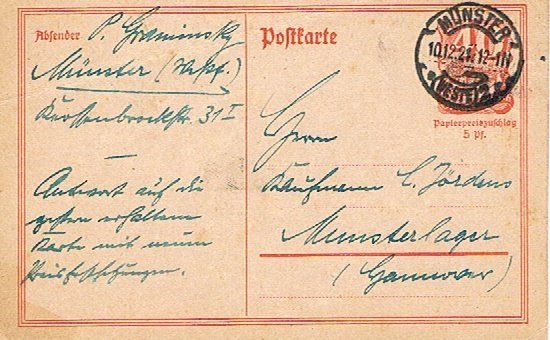 Absender P. Graminsky
Münster (Westf.)
Kerssenbrockstr. 31 I
Antwort auf die
gestern erhaltene
Karte mit neuen
Preisfestsetzungen.
Postkarte
MÜNSTER
10.12.21. 12-1N
(WESTF.) 2
Papierpreiszuschlag
5 Pf.
Herrn
Kaufmann C. Jördens
Munsterlager
(Hannover)